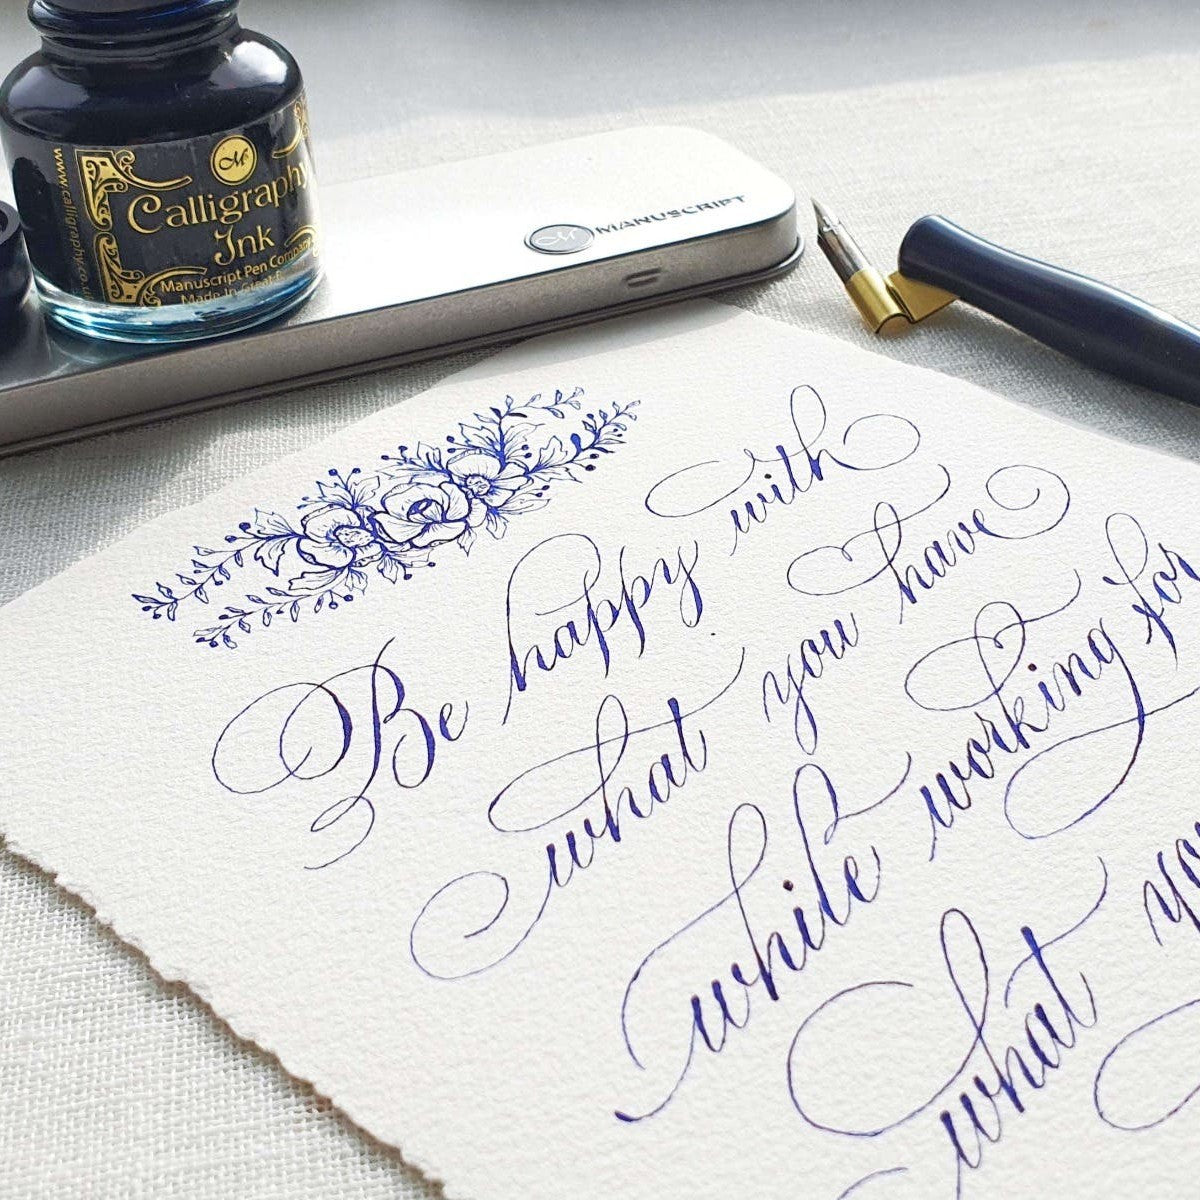 www.calligraphy.co.u
M
Calligraphy
Ink
Manuscript Pen Company
Made In Great
M MANUSCRIPT
Be happy with
what you have
while working for
what yo